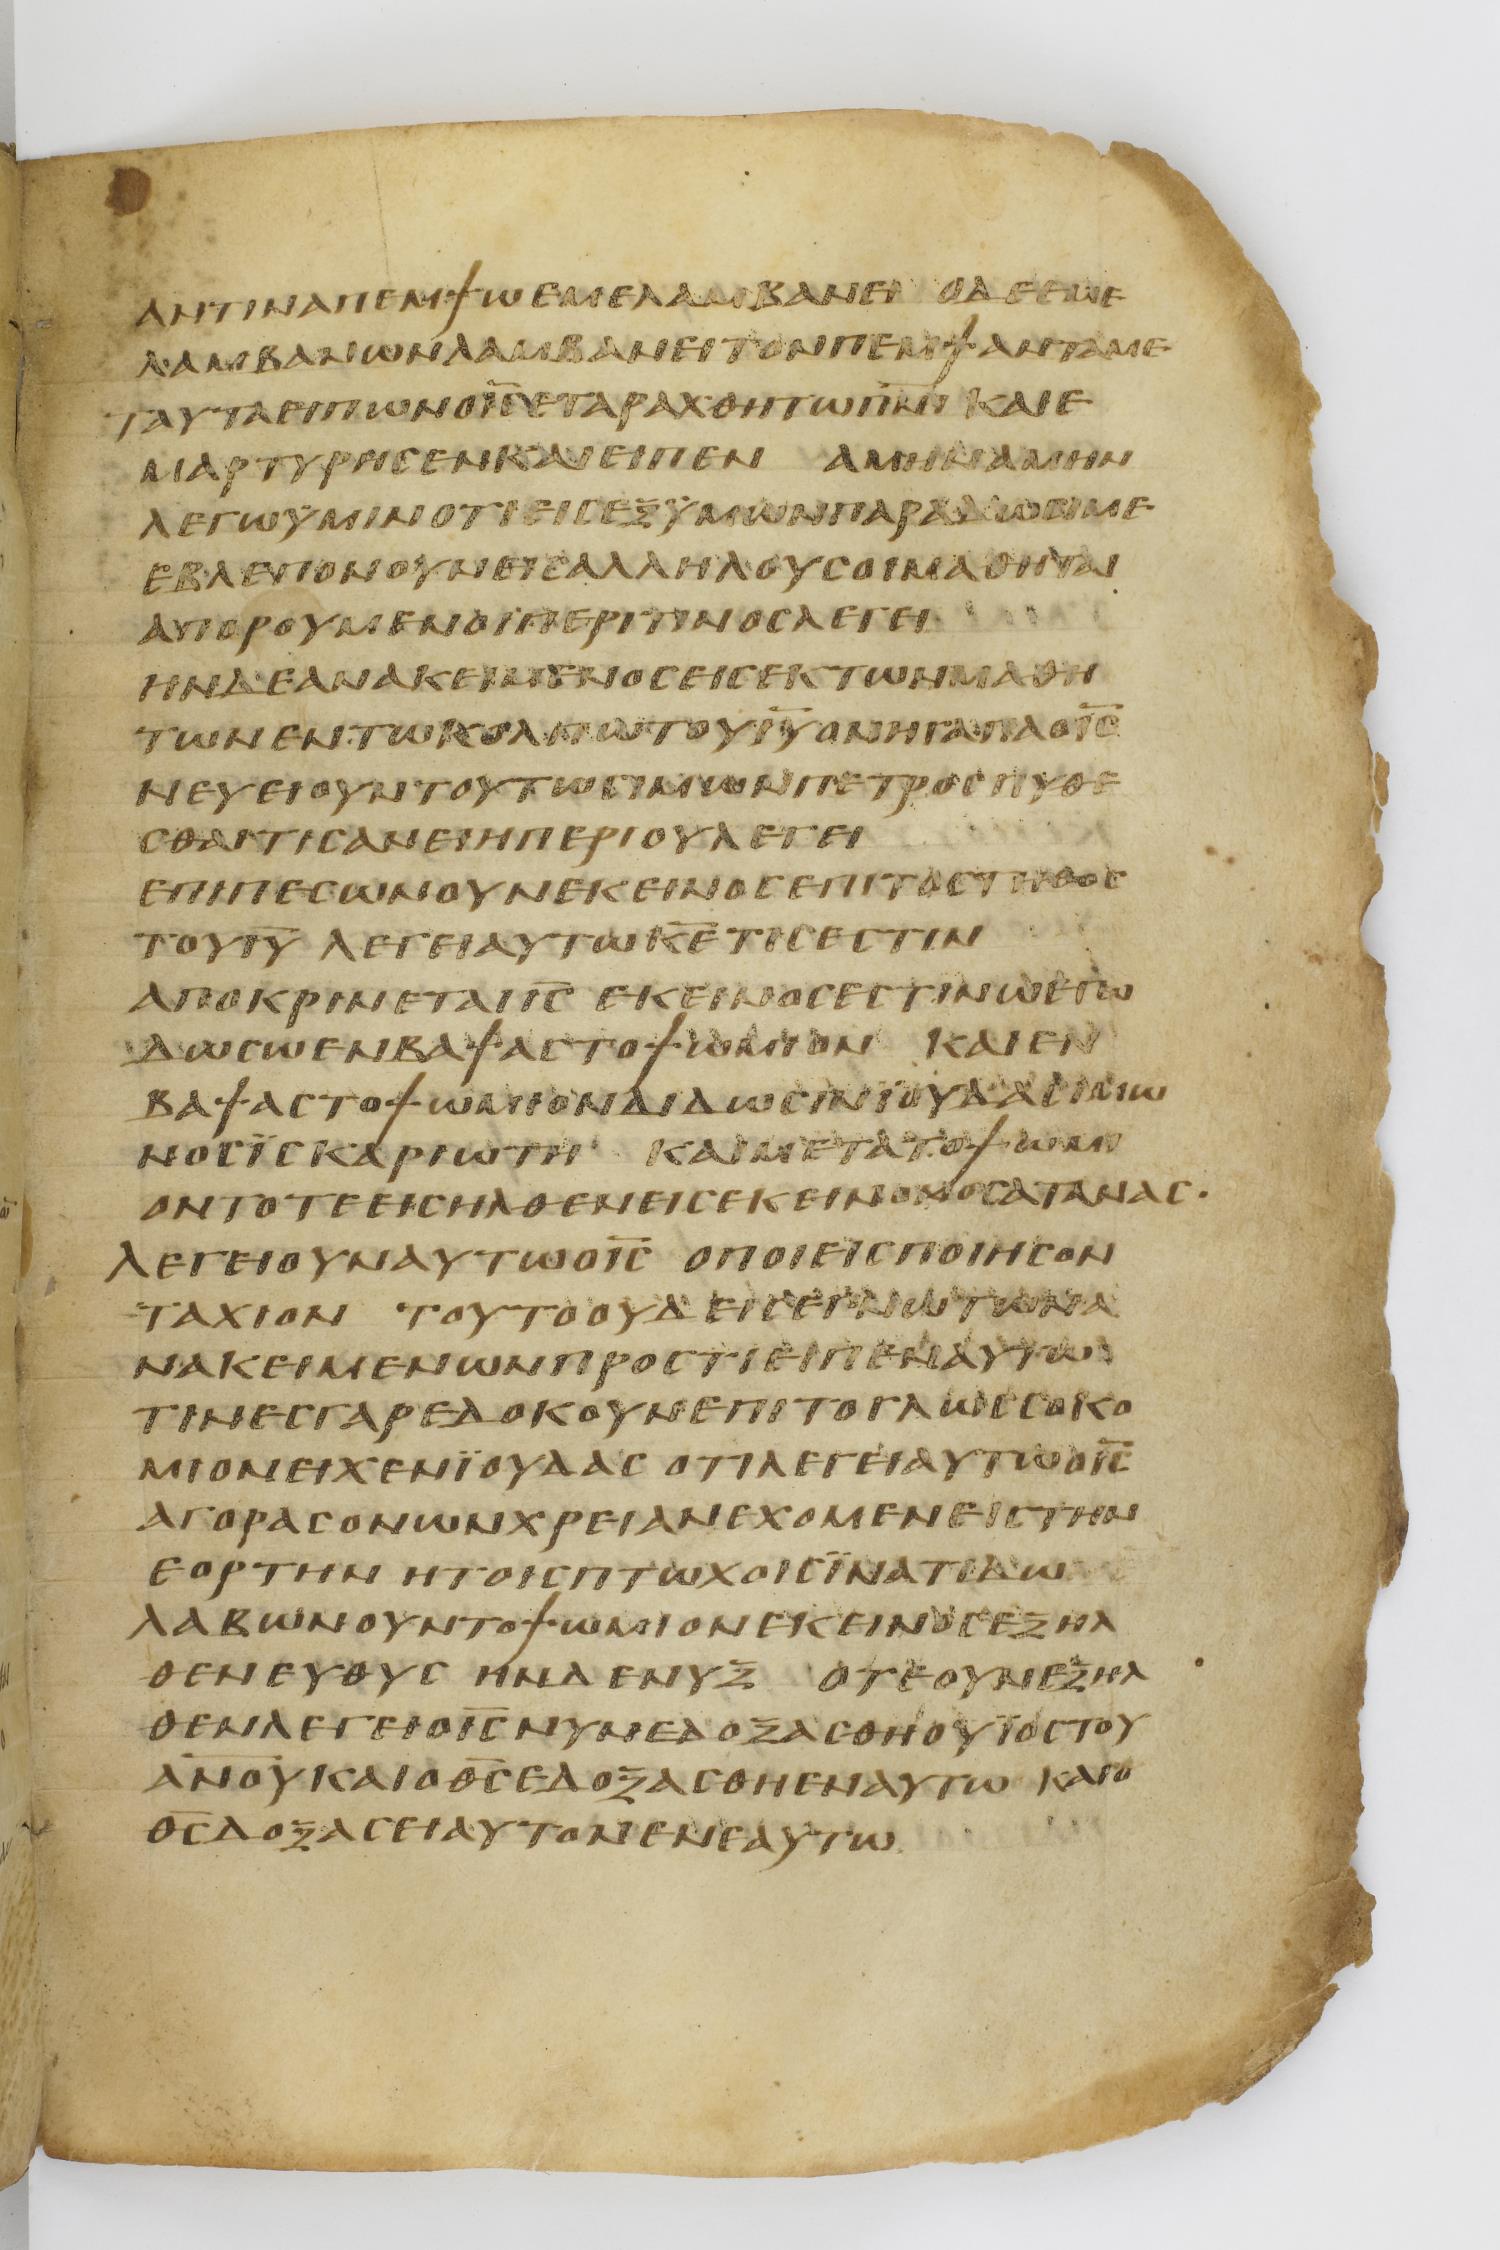 ΑΝΤΙΝΑΠΕΜΨΩΕΜΕΛΑΜΒΑΝΕΙ ΟΔΕΕΜΕ
ΛΑΜΒΑΝΩΝΛΑΜΒΑΝΕΙΤΟΝΠΕΜΨΑΝΤΑΜΕ
ΤΑΥΤΑΕΙΠΩΝΟΙ̅Σ̅ΕΤΑΡΑΧΘΗΤΩΠ̅Ν̅Ι ΚΑΙΕ
ΜΑΡΤΥΡΗΣΕΝΚΑΙΕΙΠΕΝ ΑΜΗΝΑΜΗΝ
ΛΕΓΩΫΜΙΝΟΤΙΕΙΣΕΞΫΜΩΝΠΑΡΑΔΩΣΙΜΕ
ΕΒΛΕΠΟΝΟΥΝΕΙΣΑΛΛΗΛΟΥΣΟΙΜΑΘΗΤΑΙ
ΑΠΟΡΟΥΜΕΝΟΙΠΕΡΙΤΙΝΟΣΛΕΓΕΙ
ΗΝΔΕΑΝΑΚΕΙΜΕΝΟΣΕΙΣΕΚΤΩΝΜΑΘΗ
ΤΩΝΕΝΤΩΚΟΛΠΩΤΟΥΙ̅Υ̅ΟΝΗΓΑΠΑΟΙ̅Σ̅
ΝΕΥΕΙΟΥΝΤΟΥΤΩΣΙΜΩΝΠΕΤΡΟΣΠΥΘΕ
ΣΘΑΙΤΙΣΑΝΕΙΗΠΕΡΙΟΥΛΕΓΕΙ
ΕΠΙΠΕΣΩΝΟΥΝΕΚΕΙΝΟΣΕΠΙΤΟΣΤΗΘΟΣ
ΤΟΥΙ̅Υ̅ ΛΕΓΕΙΑΥΤΩΚ̅Ε̅ΤΙΣΕΣΤΙΝ
ΑΠΟΚΡΙΝΕΤΑΙΙ̅Σ̅ ΕΚΕΙΝΟΣΕΣΤΙΝΩΕΓΩ
ΔΩΣΩΕΝΒΑΨΑΣΤΟΨΩΜΙΟΝ ΚΑΙΕΝ
ΒΑΨΑΣΤΟΨΩΜΙΟΝΔΙΔΩΣΙΝΪΟΥΔΑΣΙΜΩ
ΝΟΣΪΣΚΑΡΙΩΤΗ ΚΑΙΜΕΤΑΤΟΨΩΜΙ
ΟΝΤΟΤΕΕΙΣΗΛΘΕΝΕΙΣΕΚΕΙΝΟΝΟΣΑΤΑΝΑΣ·
ΛΕΓΕΙΟΥΝΑΥΤΩΟΙ̅Σ̅ ΟΠΟΙΕΙΣΠΟΙΗΣΟΝ
ΤΑΧΙΟΝ ΤΟΥΤΟΟΥΔΕΙΣΕΓΝΩΤΩΝΑ
ΝΑΚΕΙΜΕΝΩΝΠΡΟΣΤΙΕΙΠΕΝΑΥΤΩ
ΤΙΝΕΣΓΑΡΕΔΟΚΟΥΝΕΠΙΤΟΓΛΩΣΣΟΚΟ
ΜΙΟΝΕΙΧΕΝΪΟΥΔΑΣ ΟΤΙΛΕΓΕΙΑΥΤΩΟΙ̅Σ̅
ΑΓΟΡΑΣΟΝΩΝΧΡΕΙΑΝΕΧΟΜΕΝΕΙΣΤΗΝ
ΕΟΡΤΗΝ ΗΤΟΙΣΠΤΩΧΟΙΣΪΝΑΤΙΔΩ
ΛΑΒΩΝΟΥΝΤΟΨΩΜΙΟΝΕΚΕΙΝΟΣΕΞΗΛ
ΘΕΝΕΥΘΥΣ ΗΝΔΕΝΥΞ ΟΤΕΟΥΝΕΞΗΛ
ΘΕΝΛΕΓΕΙΟΙ̅Σ̅ΝΥΝΕΔΟΞΑΣΘΗΟΥΪΟΣΤΟΥ
Α̅Ν̅ΟΥΚΑΙΟΘ̅Σ̅ΕΔΟΞΑΣΘΗΕΝΑΥΤΩ ΚΑΙΟ
Θ̅Σ̅ΔΟΞΑΣΕΙΑΥΤΟΝΕΝΕΑΥΤΩ